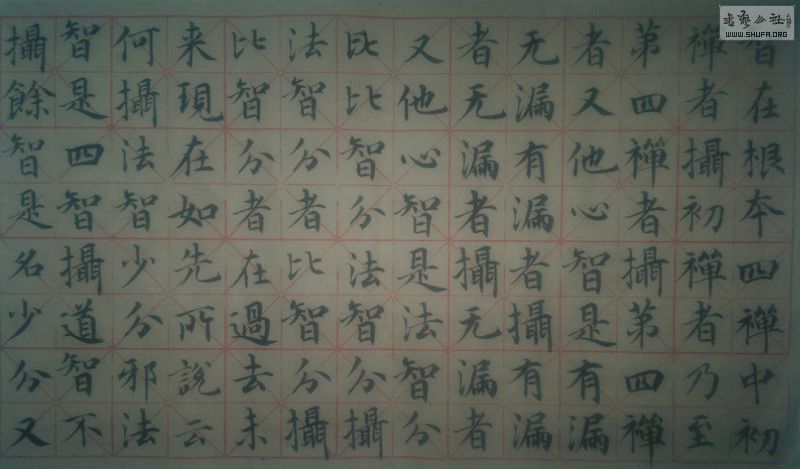 智在根夲四禪中初
禪者攝初禪者乃至
第四禪者攝第四禪
者又他心智是有漏
无漏有漏者攝有漏
者无漏者攝无漏者
又他心智是法智分
比比智分法智分攝
法智分者比智分攝
比智分者在過去未
来現在如先所說云
何攝法智少分邪法
智是四智攝道智不
攝餘智是名少分又
書藝公社
WWW.SHUFA.ORG